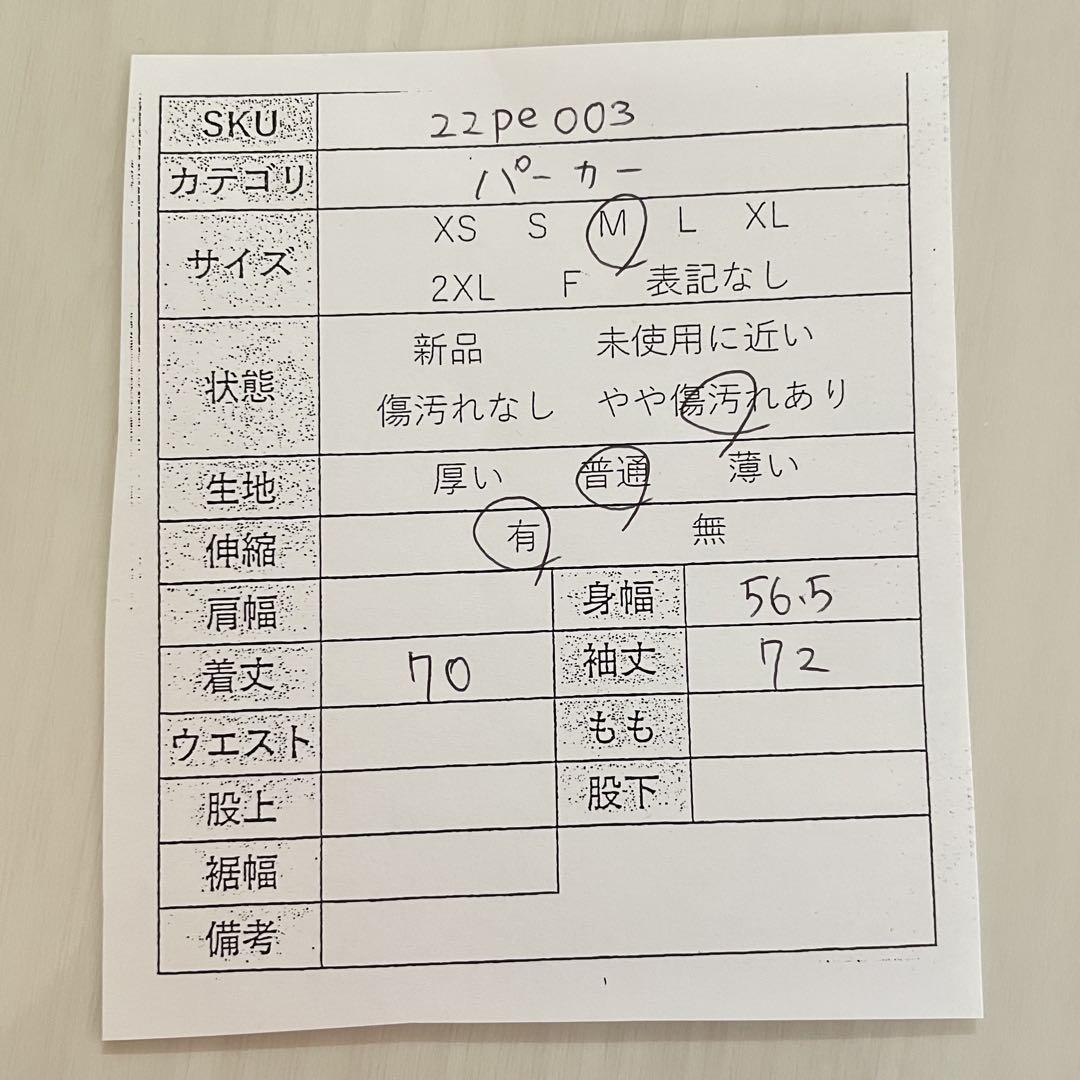 SKU 22pe003
カテゴリ パーカー
サイズ XS S M L XL
2XL F 表記なし
状態 新品 未使用に近い
傷汚れなし やや傷汚れあり
生地 厚い 普通 薄い
伸縮 有 無
肩幅 身幅 56.5
着丈 70 袖丈 72
ウエスト もも
股上 股下
裾幅
備考